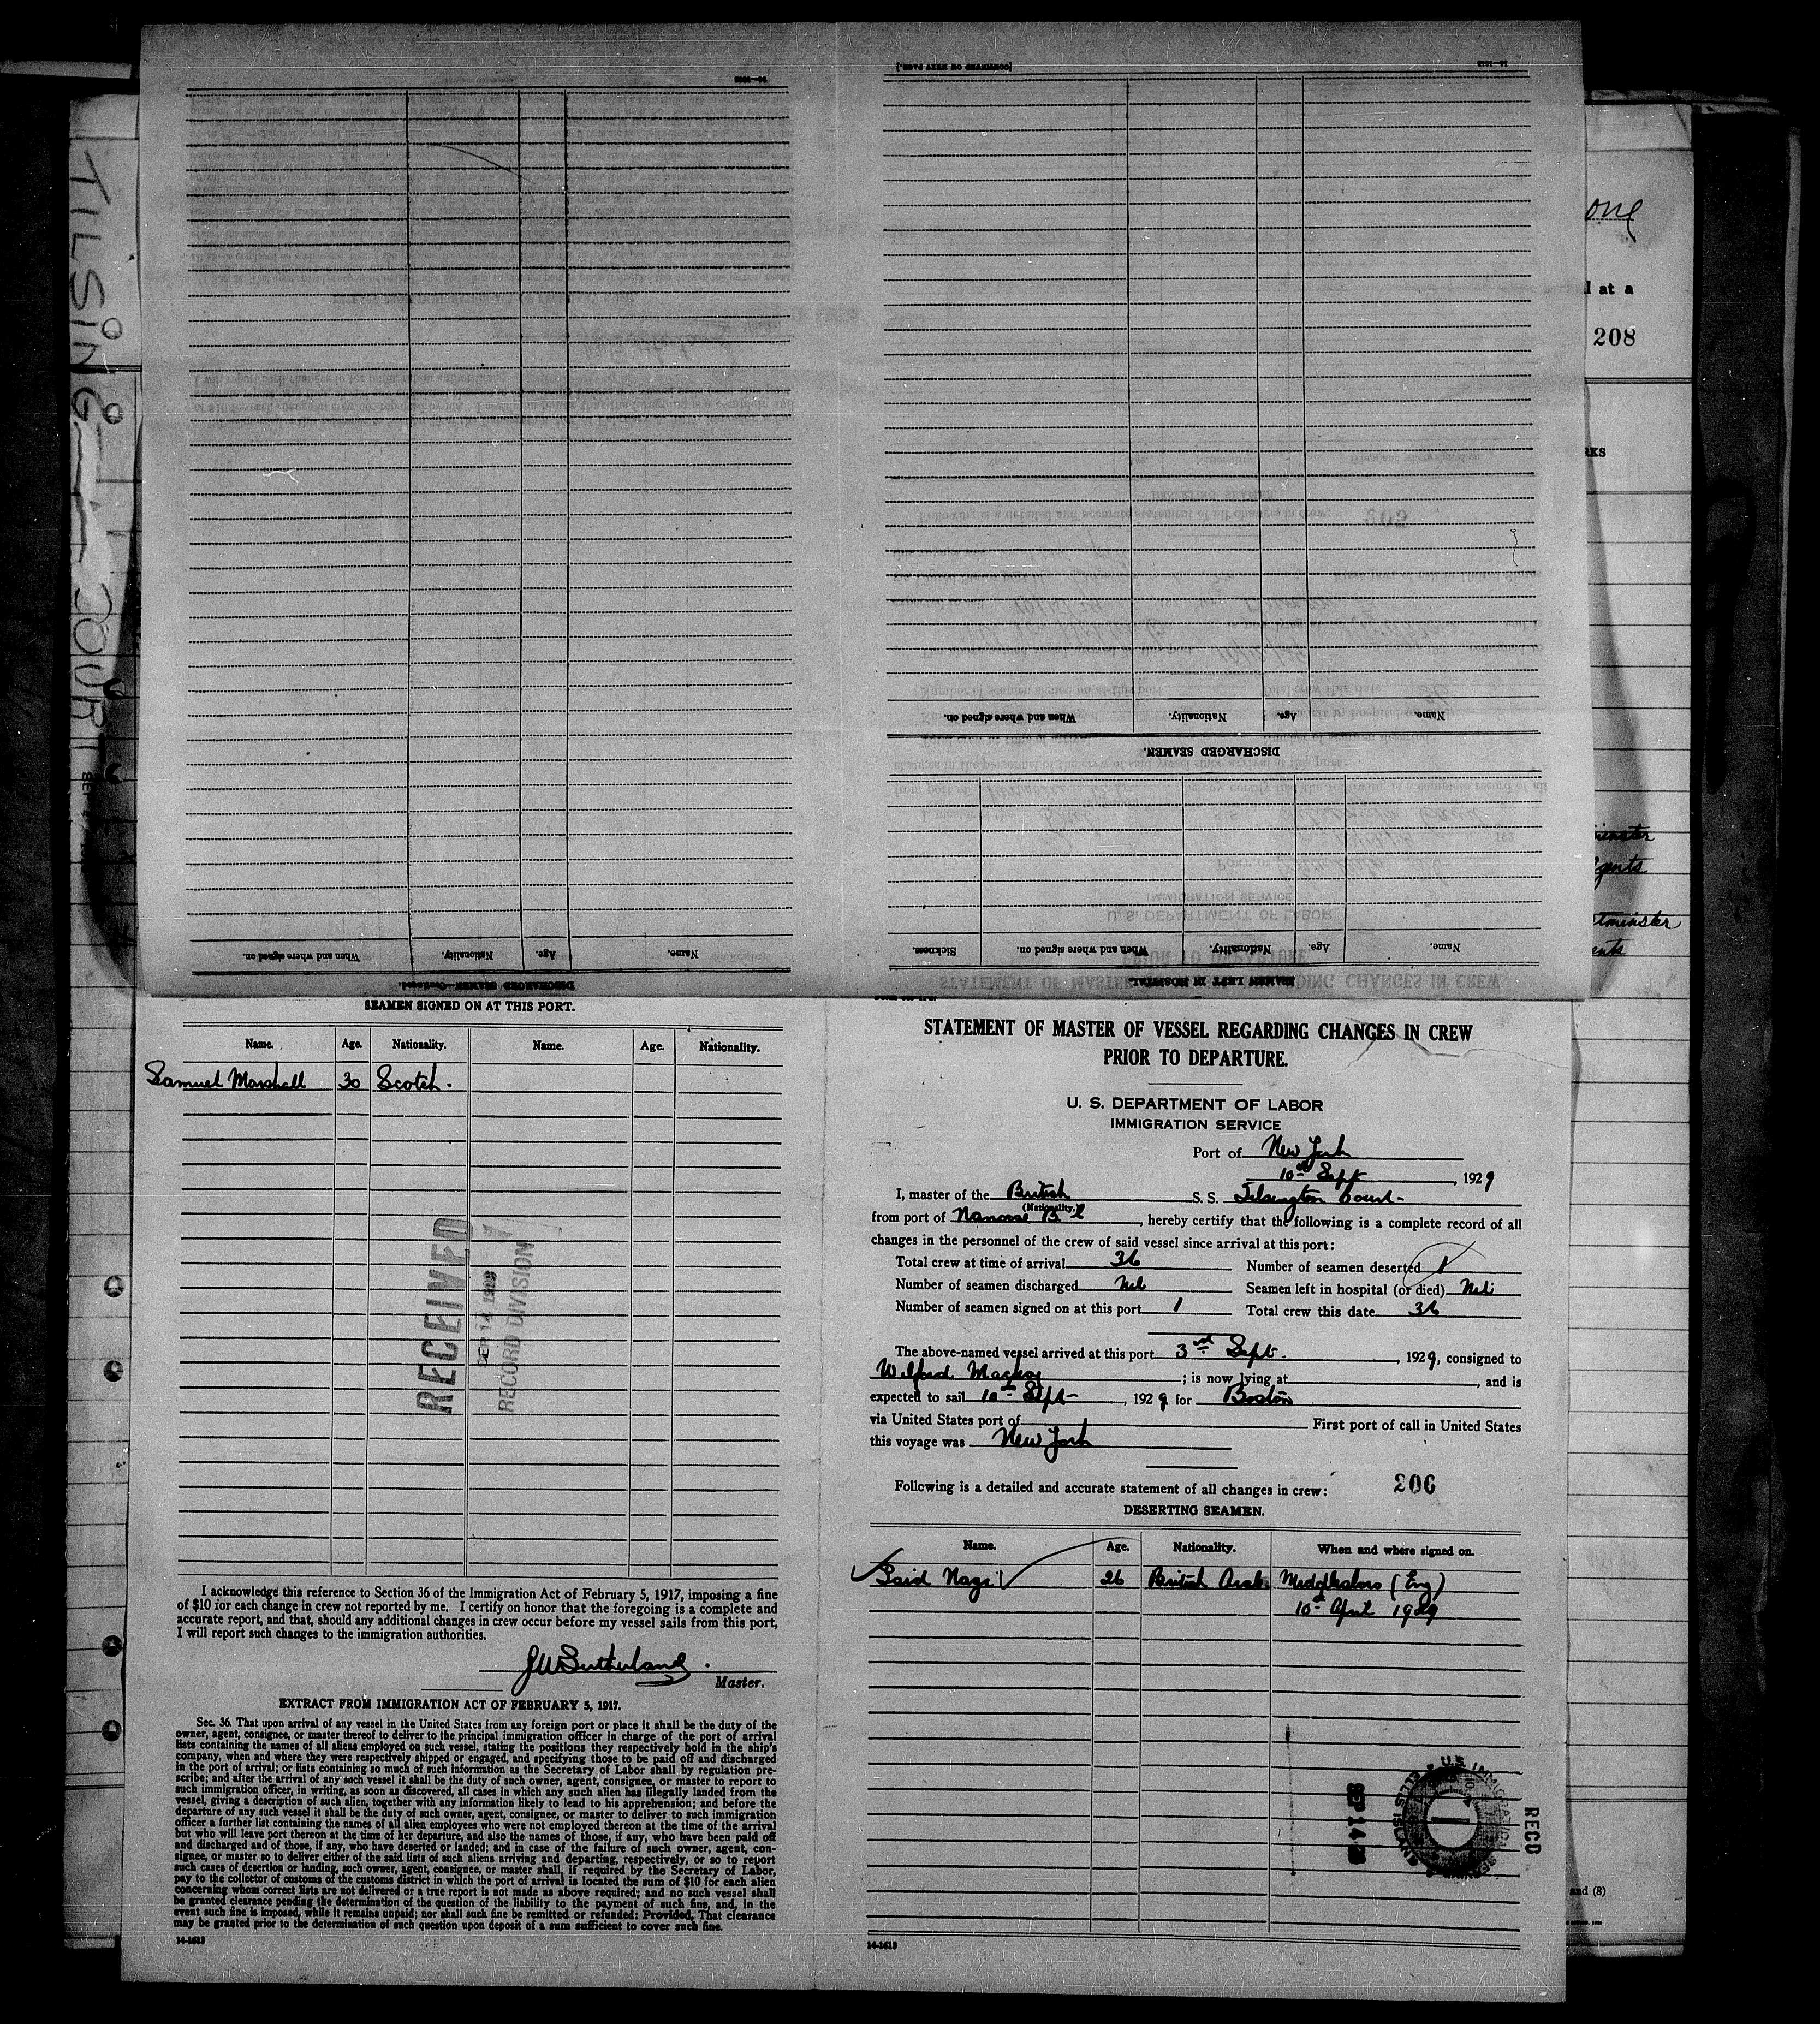 TILSINGTON COURT
one
d at a
208
RKS
minster
gents
tminster
ents
and (8)
14-1613
[CONTINUED ON NEXT PAGE.]
14-1613
When and where signed on.
Nationality.
Age.
Name.
DISCHARGED SEAMEN—Continued.
Name.
Age.
Nationality.
When and where signed on.
DISCHARGED SEAMEN.
Name.
Age.
Nationality.
When and where signed on.
Sickness.
SEAMEN LEFT IN HOSPITAL.
SEAMEN SIGNED ON AT THIS PORT.
Name. Age. Nationality. Name. Age. Nationality.
Samuel Marshall 30 Scotch.
RECEIVED
SEP 14 1929
RECORD DIVISION
I acknowledge this reference to Section 36 of the Immigration Act of February 5, 1917, imposing a fine
of $10 for each change in crew not reported by me. I certify on honor that the foregoing is a complete and
accurate report, and that, should any additional changes in crew occur before my vessel sails from this port,
I will report such changes to the immigration authorities.
JWSutherland.
Master.
EXTRACT FROM IMMIGRATION ACT OF FEBRUARY 5, 1917.
Sec. 36. That upon arrival of any vessel in the United States from any foreign port or place it shall be the duty of the
owner, agent, consignee, or master thereof to deliver to the principal immigration officer in charge of the port of arrival
lists containing the names of all aliens employed on such vessel, stating the positions they respectively hold in the ship's
company, when and where they were respectively shipped or engaged, and specifying those to be paid off and discharged
in the port of arrival; or lists containing so much of such information as the Secretary of Labor shall by regulation pre-
scribe; and after the arrival of any such vessel it shall be the duty of such owner, agent, consignee, or master to report to
such immigration officer, in writing, as soon as discovered, all cases in which any such alien has illegally landed from the
vessel, giving a description of such alien, together with any information likely to lead to his apprehension; and before the
departure of any such vessel it shall be the duty of such owner, agent, consignee, or master to deliver to such immigration
officer a further list containing the names of all alien employees who were not employed thereon at the time of the arrival
but who will leave port thereon at the time of her departure, and also the names of those, if any, who have been paid off
and discharged and of those, if any, who have deserted or landed; and in case of the failure of such owner, agent, con-
signee, or master so to deliver either of the said lists of such aliens arriving and departing, respectively, or so to report
such cases of desertion or landing, such owner, agent, consignee, or master shall, if required by the Secretary of Labor,
pay to the collector of customs of the customs district in which the port of arrival is located the sum of $10 for each alien
concerning whom correct lists are not delivered or a true report is not made as above required; and no such vessel shall
be granted clearance pending the determination of the question of the liability to the payment of such fine, and, in the
event such fine is imposed, while it remains unpaid; nor shall such fine be remitted or refunded: Provided, That clearance
may be granted prior to the determination of such question upon deposit of a sum sufficient to cover such fine.
14-1613
STATEMENT OF MASTER OF VESSEL REGARDING CHANGES IN CREW
PRIOR TO DEPARTURE.
U. S. DEPARTMENT OF LABOR
IMMIGRATION SERVICE
Port of New York
10th Sept, 1929
I, master of the British S. S. Tilsington Court
(Nationality.)
from port of Nanoose B C, hereby certify that the following is a complete record of all
changes in the personnel of the crew of said vessel since arrival at this port:
Total crew at time of arrival 36 Number of seamen deserted 1
Number of seamen discharged Nil Seamen left in hospital (or died) Nil
Number of seamen signed on at this port 1 Total crew this date 36
The above-named vessel arrived at this port 3rd Sept., 1929, consigned to
Welford Mackay; is now lying at , and is
expected to sail 10th Sept, 1929 for Boston
via United States port of First port of call in United States
this voyage was New York
Following is a detailed and accurate statement of all changes in crew: 206
DESERTING SEAMEN.
Name. Age. Nationality. When and where signed on.
Said Nagi 26 British Arab Middlesboro (Eng)
10th April 1929
RECD
SEP 14 29
U.S. IMMIGRATION SERVICE
ELLIS ISLAND
14-1613